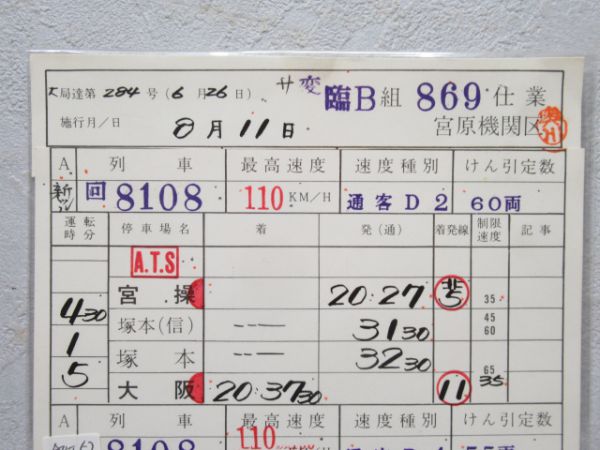 大局達第 284 号 (6 月 26 日) サ変 臨B組 869 仕業
施行月/日 8月11日 宮原機関区
A 列車 最高速度 速度種別 けん引定数
回8108 110KM/H 通客D2 60両
運転時分 停車場名 着 発(通) 着発線 制限速度 記事
A.T.S
宮操 20:27 北5 35
4 30 塚本(信) 31 30 45 60
1 塚本 32 30
5 大阪 20:37 30 11 65 35
A 列車 最高速度 速度種別 けん引定数
8108 110